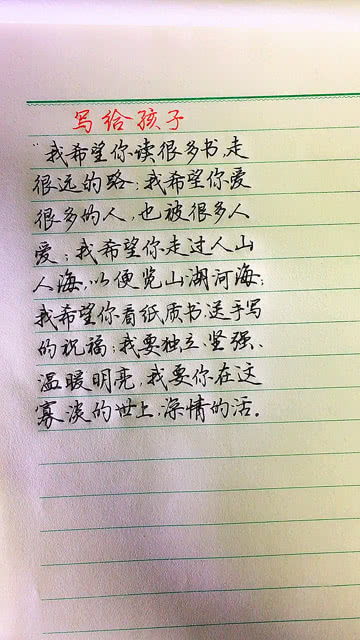 写给孩子
"我希望你读很多书,走
很远的路;我希望你爱
很多的人,也被很多人
爱;我希望你走过人山
人海,以便览山湖河海;
我希望你看纸质书送手写
的祝福;我要独立坚强、
温暖明亮,我要你在这
寡淡的世上,深情的活。